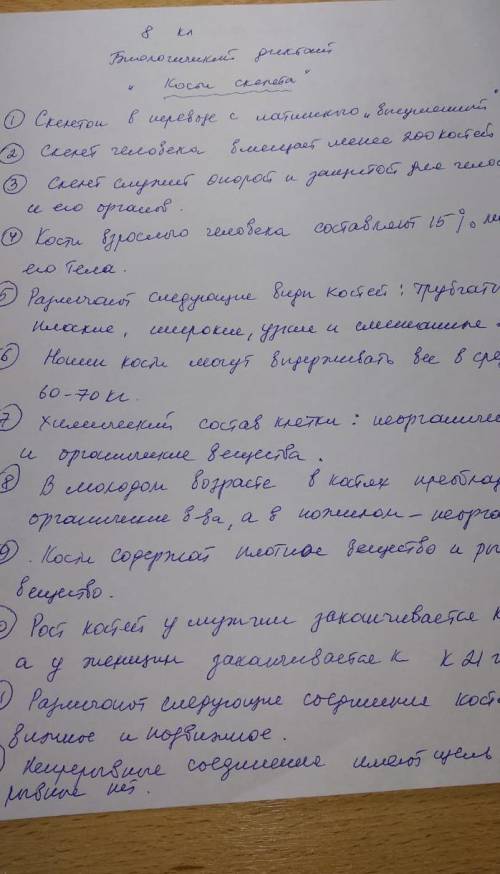 8 кл
Биологический диктант
"Кости скелета"
① Скелетом в переводе с латинского „высушенный"
② Скелет человека вмещает менее 200 костей
③ Скелет служит опорой и защитой для
и его органов.
④ Кости взрослого человека составляют 15%
его тела.
5 Различают следующие виды костей:
плоские, широкие, узкие и смешанные
6 Наши кости могут выдерживать вес в
60-70 кг.
7 Химический состав клетки:
и органические вещества.
8 В молодом возрасте в костях
органические в-ва, а в пожилом -
9. Кости содержат плотное вещество и
вещество.
0 Рост костей у мужчин заканчивается к
а у женщин заканчивается к к 21
1 Различают следующие соединения
вижное и подвижное.
Непрерывные соединения имеют щель
рывные нет.